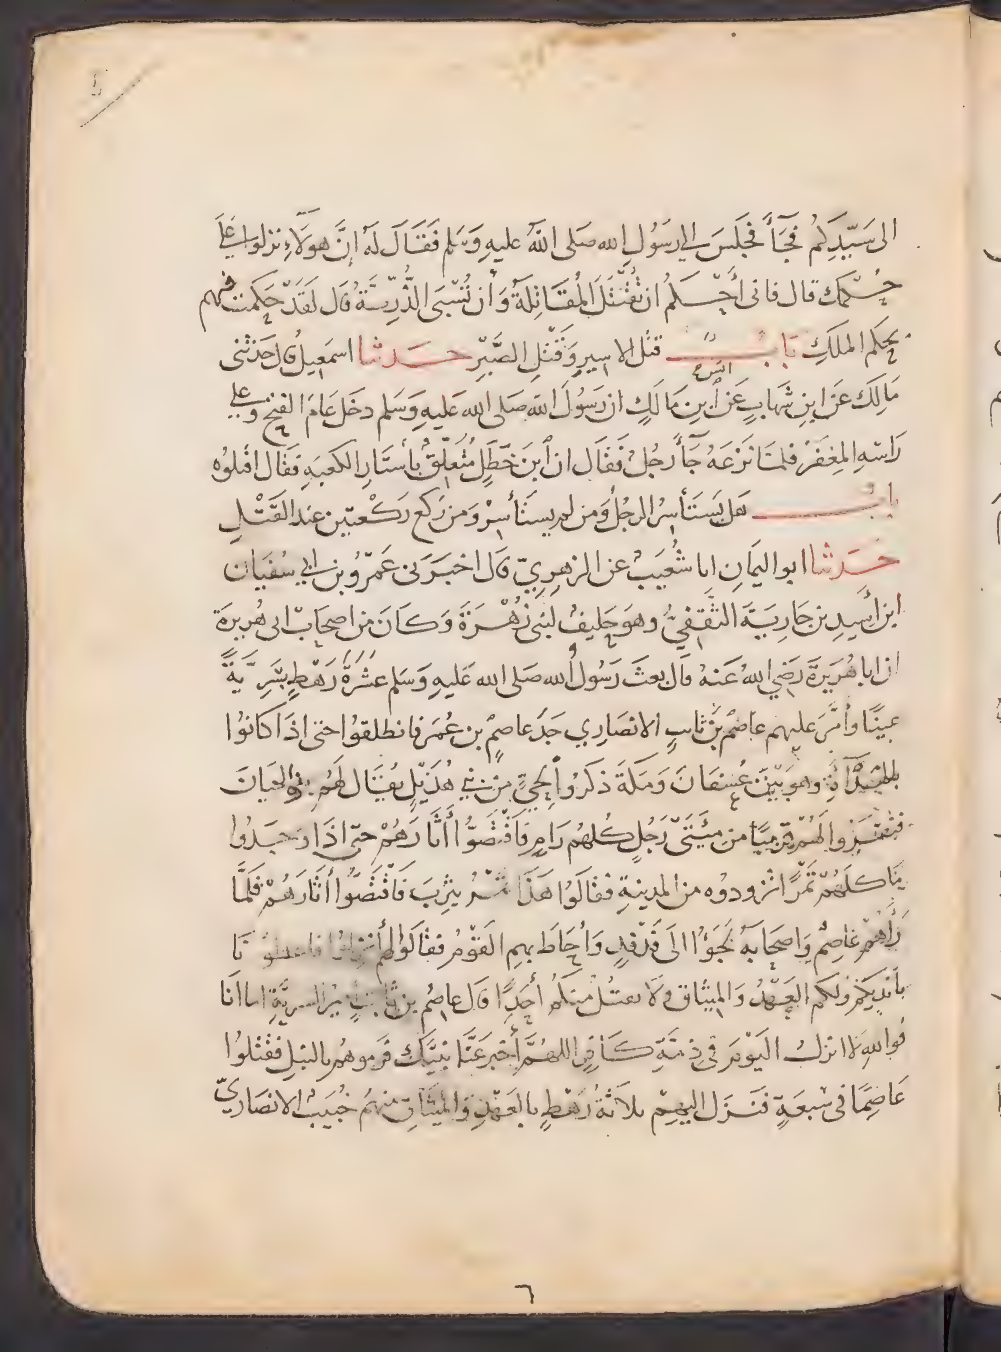 الى سَيِّدِكُمْ فَجَآءَ فَجَلَسَ الى رَسُولِ الله صَلى اللّهُ عليهِ وَسَلم فَقَالَ لَهُ إنَّ هؤلَآءِ نزلوا على
حُكْمِكَ قال فانى أَحْكُمُ ان تُقْتَلَ المُقَاتِلَةُ وَأن تُسْبَى الذُّرِّيَّةُ قال لَقَدْ حَكَمْتَ فيهم
بحكم الملَكِ بَابُ قتْل الاسيرِ وَقَتْلِ الصَّبْرِ حَدثنا اسمعيلُ قال حَدثنى
انس
مَالِك عَن ابنِ شِهَابٍ عَن أنسِ بن مَالِكٍ ان رَسُولَ الله صَلى الله عَليهِ وَسَلم دخَلَ عَامَ الفتح وعلى
رَاسِهِ المِغفَرُ فلمَّا نَزَعَهُ جَآءَ رَجُلٌ فَقَال ان ابنَ خَطَلٍ مُتَعَلِّقٌ بأستَارِ الكعبَةِ فقال اقتلوُه
بابُ هَل يَستَأسِرُ الرجُلُ وَمن لم يستأسِرْ وَمن رَكَع رَكْعتين عند القَتْلِ
حَدثنا ابو اليَمَانِ انا شُعَيبٌ عن الزهرِيِّ قال اخبَرَنى عَمْرُو بن ابى سُفيَان
ابن أسِيدِ بن جَارِيَةَ الثَّقَفِيُّ وهوَ حَلِيفٌ لبَنى زُهْرَةَ وَكَانَ مِن اصحَابِ ابى هُريرَة
ان ابا هُرَيرَةَ رَضِي اللهُ عَنهُ قال بعثَ رَسُولُ الله صَلى الله عَليهِ وَسَلم عشَرَةَ رَهْطٍ سَرِيَّةً
عينًا وأمَّرَ عليهم عَاصمَ بنَ ثابتٍ الانصَارِي جَدَّ عَاصمِ بن عُمَرَ فانطلقوا حتى اذَا كانوُا
بالهَدْأةِ وهو بَيْنَ عُسْفَانَ وَمكَةَ ذكرُوا لِحَيٍّ مِن بني هُذَيْلٍ يُقَال لَهُم بنو لحيَانَ
فنَفَرُوا لَهُمْ قريبًا من مِئَتَىْ رَجُلٍ كُلهُم رَامٍ فَاقْتَصُّوا أَثَارَهُمْ حتى اذَا وَجَدُوا
مَأكَلَهُمْ تَمْرًا تزودوُه من المدِينةِ فقالوُا هَذَا تمرُ يثرِبَ فَاقْتَصُّوا أثَارَهُمْ فلمَّا
رَأَهُم عَاصِمٌ وَاصحَابهُ لَجَؤُا الى فَدْفَدٍ وَأحَاطَ بهم القَوْمُ فقالوُا لهم أنزلوُا فاعطونَا
بأيدِيكُم ولكم العَهْدُ وَالميثاق وَلا نقتُل منكم أحَدًا قال عاصِمُ بن ثابتٍ اميرُ السريَّةِ اما انَا
فوالله لا انزلُ اليَوْمَ فى ذِمَّةِ كَافِرٍ اللهُمَّ أخبر عَنَّا نبيَّكَ فرَموهُم بالنبلِ فقتلوُا
عَاصِمًا فى سَبعَةٍ فَنَزَلَ اليهِمْ ثلاثَةُ رَهْطٍ بالعَهْدِ وَالميثَاقِ منهُم خُبَيبٌ الانصَارِيّ
٦